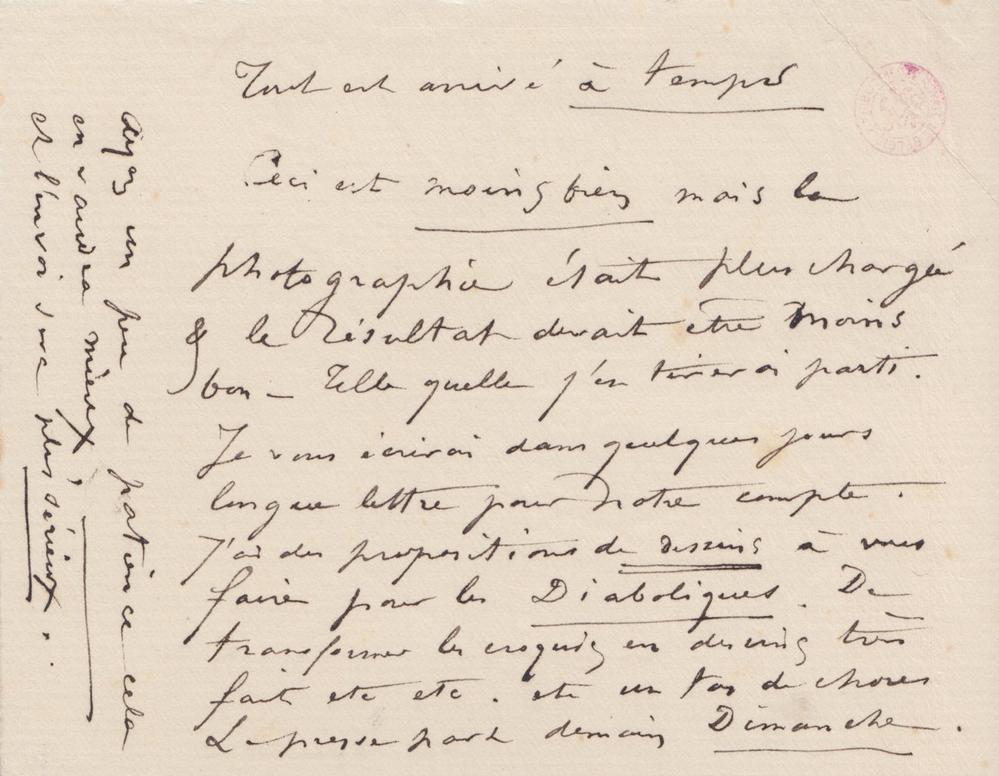 Tout est arrivé à temps
Ceci est moins bien mais la
photographie était plus chargée
& le résultat devait être moins
bon — Telle quelle j'en tirerai parti.
Je vous écrirai dans quelques jours
longue lettre pour notre compte.
J'ai des propositions de dessins à vous
faire pour les Diaboliques. De
transformer les croquis en dessins très
fait etc etc. etc un tas de choses
La presse part demain Dimanche.
Ayez un peu de patience cela
en vaudra mieux,
et l'envoi sera plus sérieux.